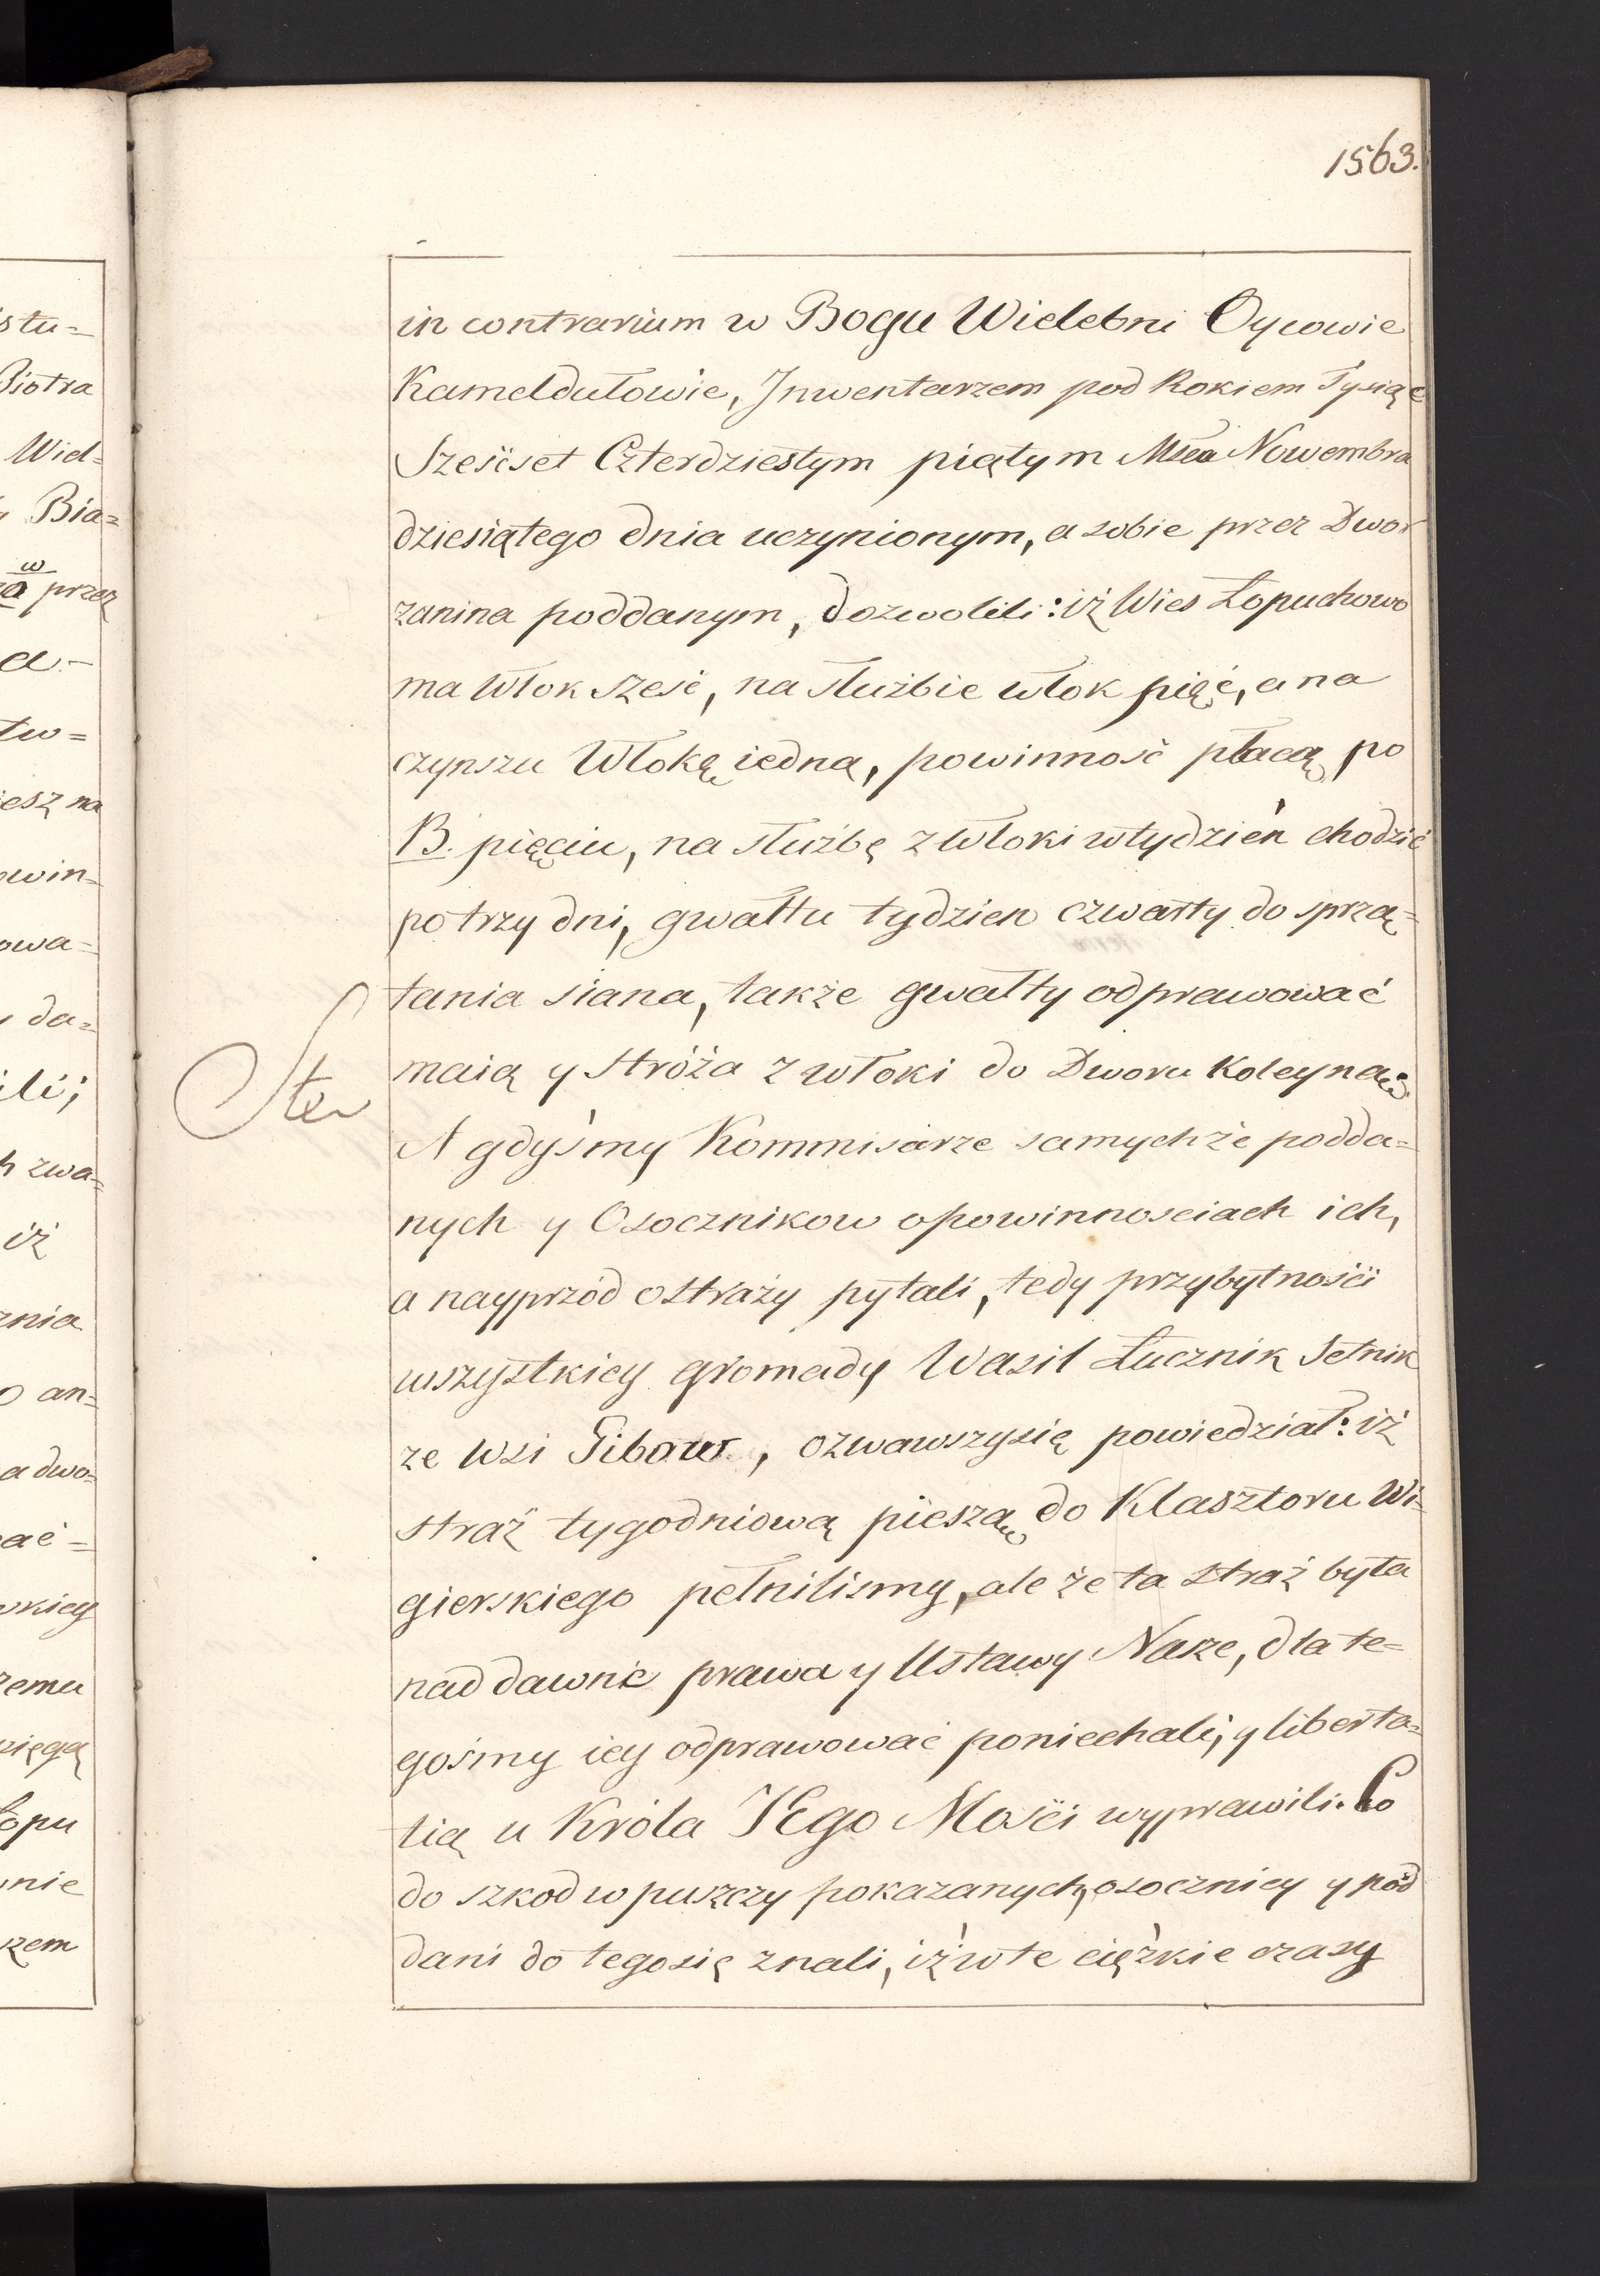 1563.
in contrarium w Bogu Wielebni Oycowie
Kameldułowie, Jnwentarzem pod Rokiem Tysiąc
Sześćset Czterdziestym piątym Msca Nowembra
dziesiątego dnia uczynionym, a sobie przez Dwor
zanina poddanym, dozwolili: iż Wies Łopuchowo
ma Włok sześć, na służbie włok pięć, a na
czynszu Włokę iedną, powinność płacą po
B. pięciu, na służbę z Włoki w tydzień chodzić
po trzy dni, gwałtu tydzien czwarty do sprzą=
tania siana, także gwałty odprawować
maią y stróża z włoki do Dworu koleyną:
A gdyśmy Kommisarze samychże podda=
nych y Osocznikow o powinnosciach ich,
a nayprzód o straży pytali, tedy przy bytności
wszystkiey gromady Wasil Łucznik Setnik
ze Wsi Gibow, ozwawszysię powiedział: iż
straż tygodniową pieszą do Klasztoru Wi-
gierskiego pełnilismy, ale że ta straż była
nad dawne prawa y Ustawy Nasze, dla te=
gośmy iey odprawować poniechali, y liberta=
tią u Króla JEgo Mości wyprawili. Co
do szkod w puszczy pokazanych, osocznicy y pod
dani do tego się znali, iż w te ciężkie czasy
stu=
Piotra
Wiel=
Bia=
w
przez
a.-
tw=
iesz na
owin=
owa=
y da=
ili;
h zwa=
iż
znia
o an=
a dwo=
ać =
skiey
żemu
pięgą
Łopu
nie
szem